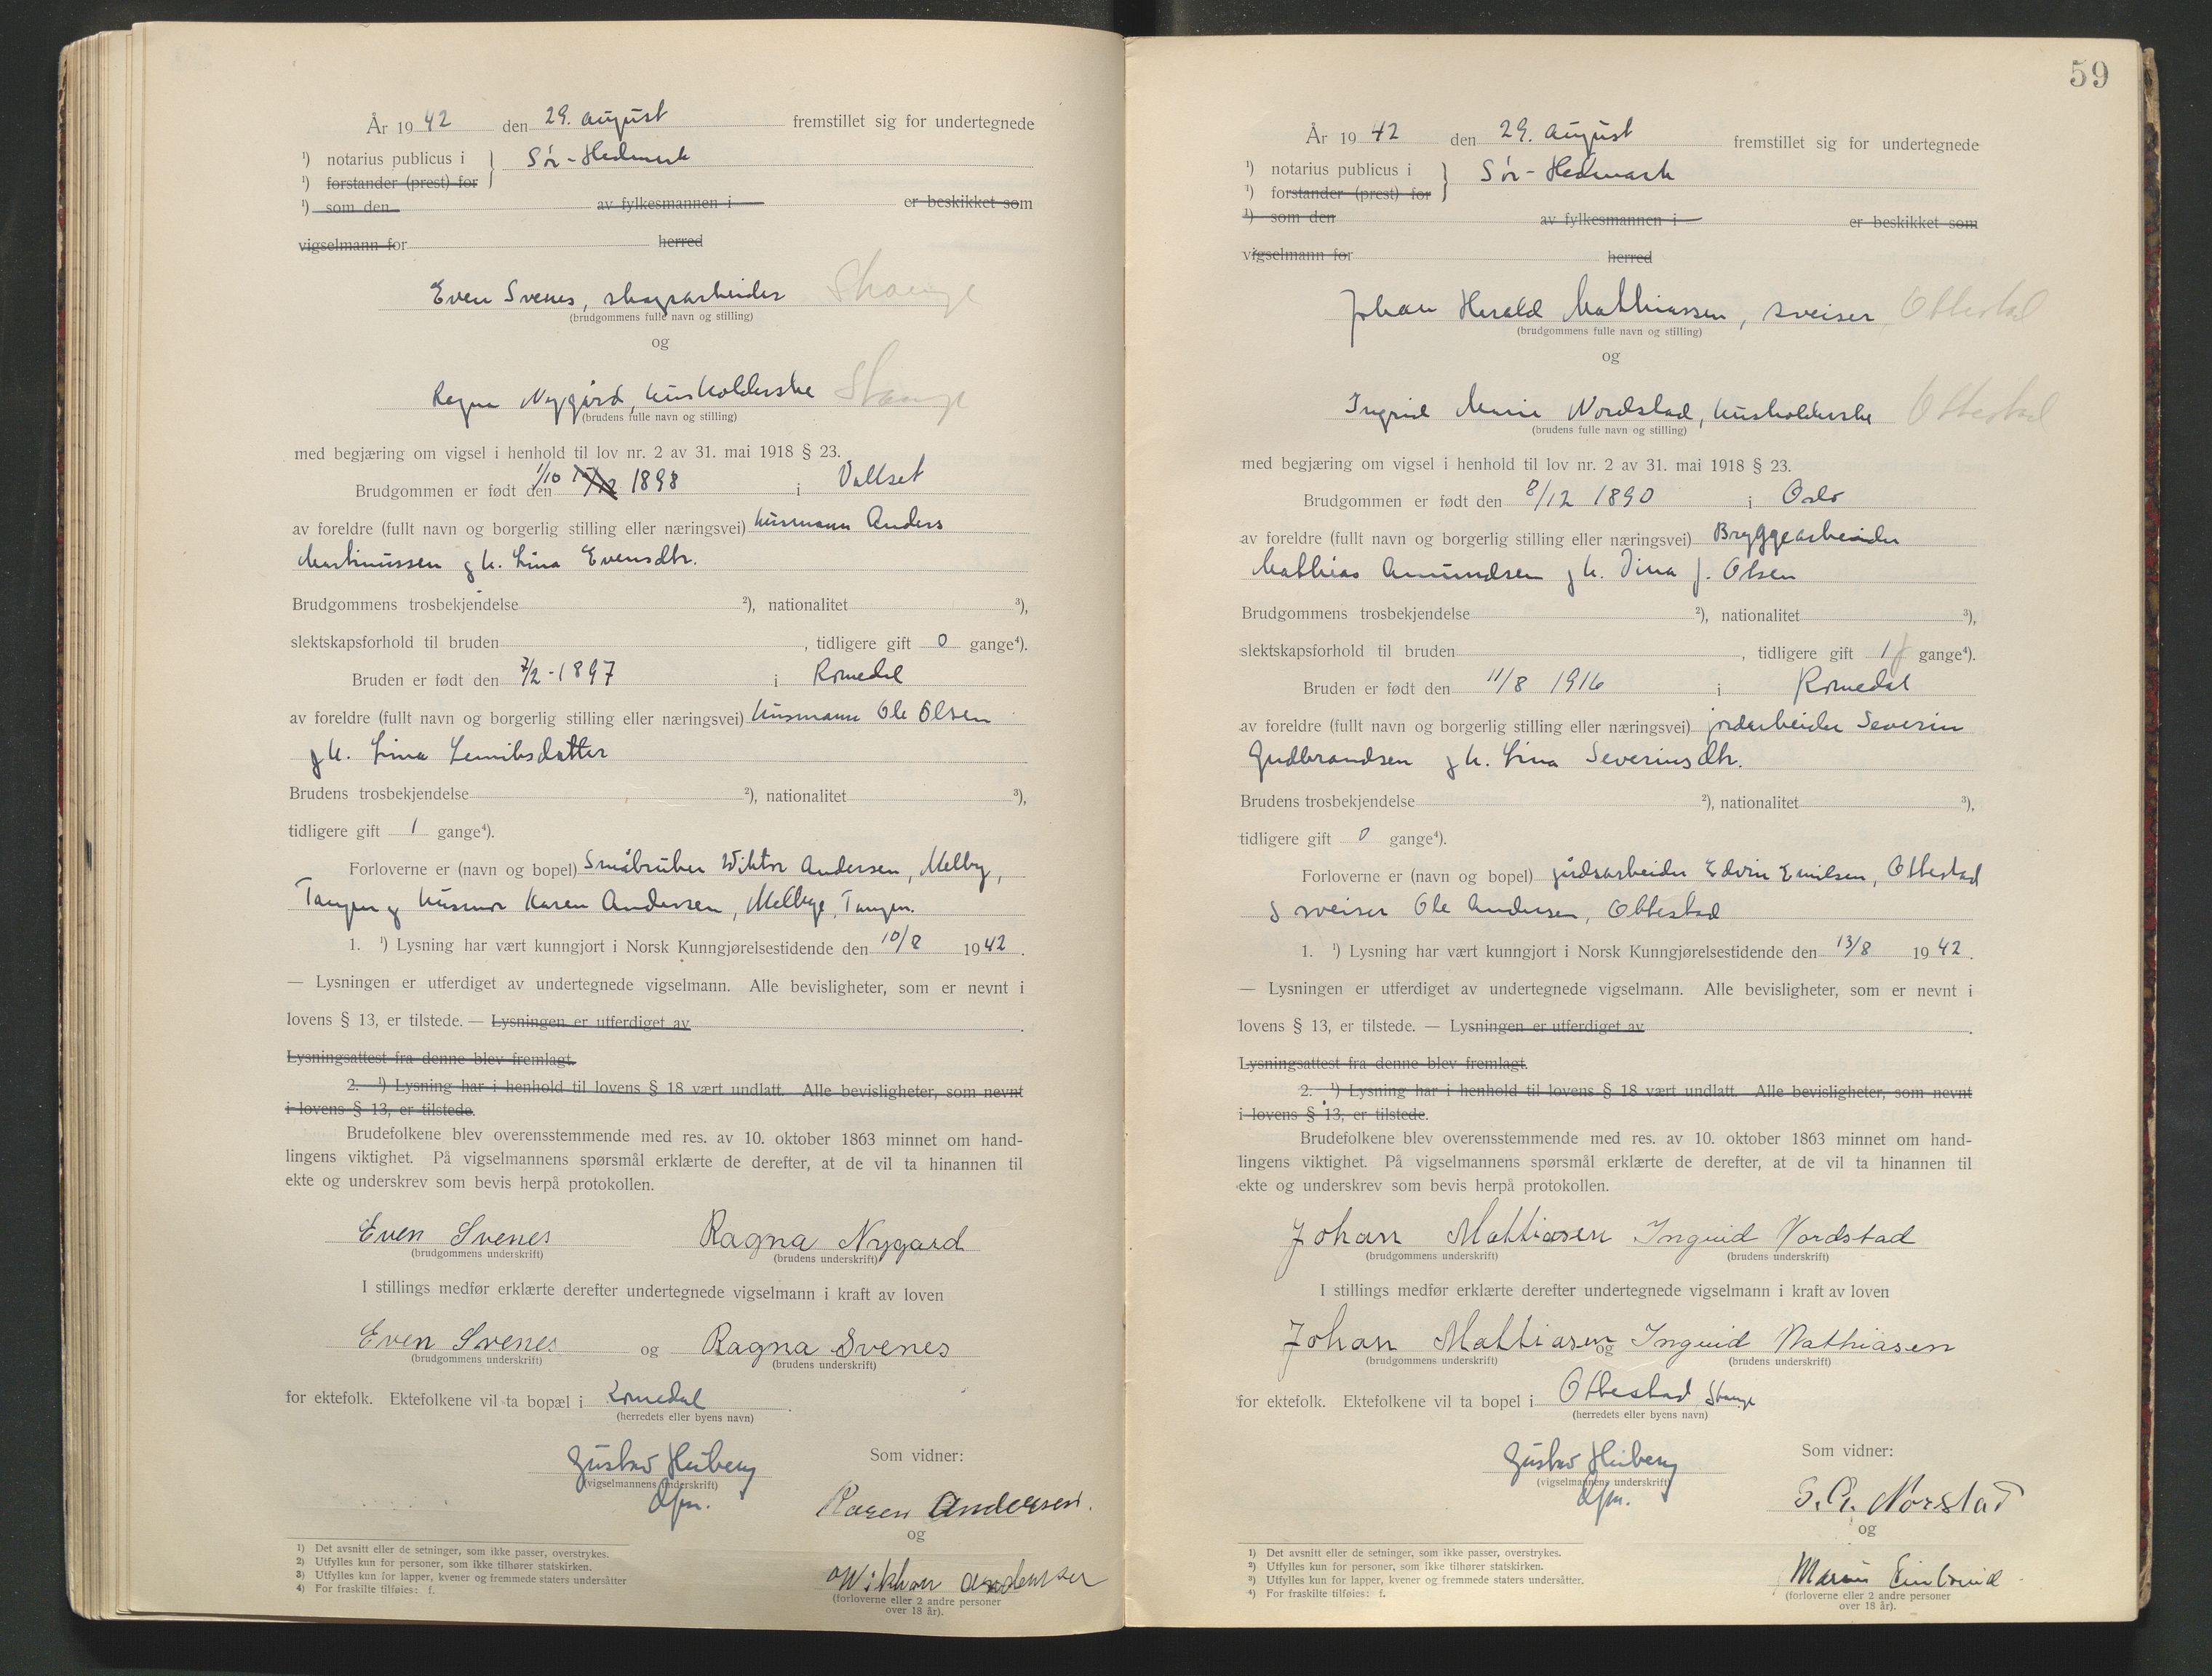 År 19 42 den 29. august fremstillet sig for undertegnede
¹) notarius publicus i } Sör-Hedmark
¹) forstander (prest) for
¹) som den av fylkesmannen i er beskikket som
vigselmann for herred
Even Svenes, skogsarbeider Stange
(brudgommens fulle navn og stilling)
og
Ragna Nygård, husholderske Stange
(brudens fulle navn og stilling)
med begjæring om vigsel i henhold til lov nr. 2 av 31. mai 1918 § 23.
Brudgommen er født den 1/10 1898 i Vallset
av foreldre (fullt navn og borgerlig stilling eller næringsvei) husmann Anders
Martinussen g h. Lina Evensdtr.
Brudgommens trosbekjendelse ²), nationalitet ³),
slektskapsforhold til bruden , tidligere gift 0 gange⁴).
Bruden er født den 7/2 - 1897 i Romedal
av foreldre (fullt navn og borgerlig stilling eller næringsvei) husmann Ole Olsen
g h. Lina Lemiksdatter
Brudens trosbekjendelse ²), nationalitet ³),
tidligere gift 1 gange⁴).
Forloverne er (navn og bopel) Småbruker Wiktor Andersen, Melby,
Tangen g husmor Karen Andersen, Melbye, Tangen.
1. ¹) Lysning har vært kunngjort i Norsk Kunngjørelsestidende den 10/8 1942.
— Lysningen er utferdiget av undertegnede vigselmann. Alle bevisligheter, som er nevnt i
lovens § 13, er tilstede. — Lysningen er utferdiget av .
Lysningsattest fra denne blev fremlagt.
2. ¹) Lysning har i henhold til lovens § 18 vært undlatt. Alle bevisligheter, som nevnt
i lovens § 13, er tilstede.
Brudefolkene blev overensstemmende med res. av 10. oktober 1863 minnet om hand-
lingens viktighet. På vigselmannens spørsmål erklærte de derefter, at de vil ta hinannen til
ekte og underskrev som bevis herpå protokollen.
Even Svenes Ragna Nygard
(brudgommens underskrift) (brudens underskrift)
I stillings medfør erklærte derefter undertegnede vigselmann i kraft av loven
Even Svenes og Ragna Svenes
(brudgommens underskrift) (brudens underskrift)
for ektefolk. Ektefolkene vil ta bopæl i Romedal .
(herredets eller byens navn)
Gustav Heiberg Som vidner:
(vigselmannens underskrift)
dfm. Karen Andersen.
og
Wiktor Andersen
(forloverne eller 2 andre personer
over 18 år).
1) Det avsnitt eller de setninger, som ikke passer, overstrykes.
2) Utfylles kun for personer, som ikke tilhører statskirken.
3) Utfylles kun for lapper, kvener og fremmede staters undersåtter
4) For fraskilte tilføies: f.
59
År 19 42 den 29. august fremstillet sig for undertegnede
¹) notarius publicus i } Sör-Hedmark
¹) forstander (prest) for
¹) som den av fylkesmannen i er beskikket som
vigselmann for herred
Johan Harald Mathiassen, sveiser Ottestad
(brudgommens fulle navn og stilling)
og
Ingrid Marie Nordstad, husholderske Ottestad
(brudens fulle navn og stilling)
med begjæring om vigsel i henhold til lov nr. 2 av 31. mai 1918 § 23.
Brudgommen er født den 8/12 1890 i Oslo
av foreldre (fullt navn og borgerlig stilling eller næringsvei) Bryggearbeider
Mathias Amundsen g h. Dina f. Olsen
Brudgommens trosbekjendelse ²), nationalitet ³),
slektskapsforhold til bruden , tidligere gift 1 f gange⁴).
Bruden er født den 11/8 1916 i Romedal
av foreldre (fullt navn og borgerlig stilling eller næringsvei) jordarbeider Severin
Gudbrandsen g h. Lina Severinsdtr.
Brudens trosbekjendelse ²), nationalitet ³),
tidligere gift 0 gange⁴).
Forloverne er (navn og bopel) gårdsarbeider Edvin Emilsen, Ottestad
g sveiser Ole Andersen, Ottestad
1. ¹) Lysning har vært kunngjort i Norsk Kunngjørelsestidende den 13/8 19 42.
— Lysningen er utferdiget av undertegnede vigselmann. Alle bevisligheter, som er nevnt i
lovens § 13, er tilstede. — Lysningen er utferdiget av .
Lysningsattest fra denne blev fremlagt.
2. ¹) Lysning har i henhold til lovens § 18 vært undlatt. Alle bevisligheter, som nevnt
i lovens § 13, er tilstede.
Brudefolkene blev overensstemmende med res. av 10. oktober 1863 minnet om hand-
lingens viktighet. På vigselmannens spørsmål erklærte de derefter, at de vil ta hinannen til
ekte og underskrev som bevis herpå protokollen.
Johan Mattiasen Ingrid Nordstad
(brudgommens underskrift) (brudens underskrift)
I stillings medfør erklærte derefter undertegnede vigselmann i kraft av loven
Johan Mattiasen og Ingrid Mathiasen
(brudgommens underskrift) (brudens underskrift)
for ektefolk. Ektefolkene vil ta bopel i Ottestad Stange
(herredets eller byens navn)
Gustav Heiberg Som vidner:
(vigselmannens underskrift)
dfm. S. G. Norstad
og
Marius
(forloverne eller 2 andre personer
over 18 år).
1) Det avsnitt eller de setninger, som ikke passer, overstrykes.
2) Utfylles kun for personer, som ikke tilhører statskirken.
3) Utfylles kun for lapper, kvener og fremmede staters undersåtter.
4) For fraskilte tilføies: f.